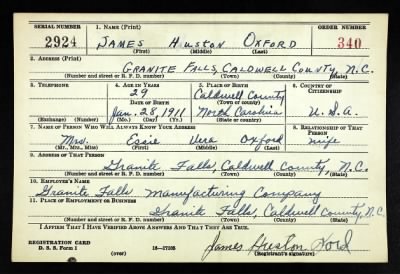 SERIAL NUMBER 1. NAME (Print) ORDER NUMBER
2924 JAMES HUSTON OXFORD 340
(First) (Middle) (Last)
2. ADDRESS (Print)
GRANITE FALLS, CALDWELL COUNTY, N.C.
(Number and street or R. F. D. number) (Town) (County) (State)
3. TELEPHONE 4. AGE IN YEARS 5. PLACE OF BIRTH 6. COUNTRY OF CITIZENSHIP
29 Caldwell County
DATE OF BIRTH (Town or county)
Jan. 28, 1911 North Carolina U.S.A.
(Exchange) (Number) (Mo.) (Day) (Yr.) (State or country)
7. NAME OF PERSON WHO WILL ALWAYS KNOW YOUR ADDRESS 8. RELATIONSHIP OF THAT PERSON
Mrs. Essie Vera Oxford wife
(Mr., Mrs., Miss) (First) (Middle) (Last)
9. ADDRESS OF THAT PERSON
Granite Falls Caldwell County, N.C.
(Number and street or R. F. D. number) (Town) (County) (State)
10. EMPLOYER'S NAME
Granite Falls Manufacturing Company
11. PLACE OF EMPLOYMENT OR BUSINESS
Granite Falls, Caldwell County, N.C.
(Number and street or R. F. D. number) (Town) (County) (State)
I AFFIRM THAT I HAVE VERIFIED ABOVE ANSWERS AND THAT THEY ARE TRUE.
REGISTRATION CARD
D. S. S. Form 1 (over) 16—17105 James
(Registrant's signature)